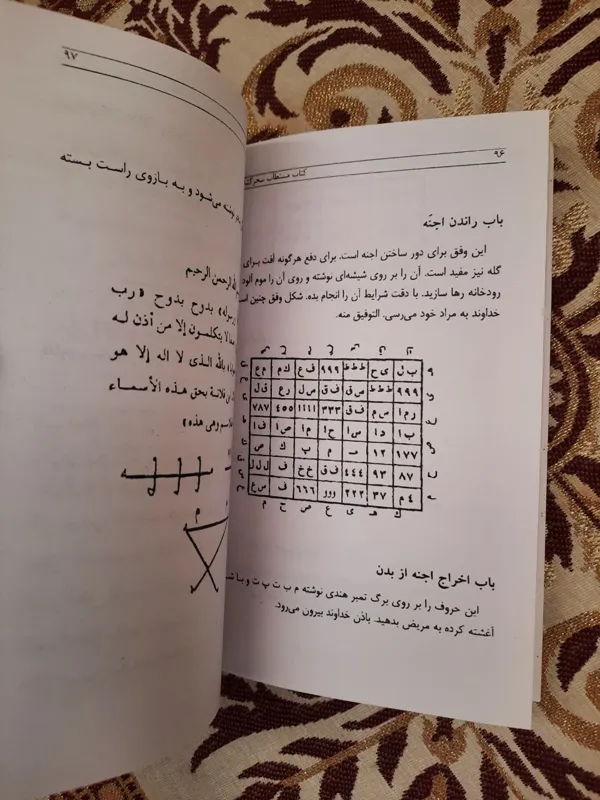 ۹۶
کتاب مستطاب
باب راندن اجنّه
این وفق برای دور ساختن اجنه است. برای دفع هرگونه آفت برای
گله نیز مفید است. آن را بر روی شیشه‌ای نوشته و روی آن را موم آلود
رودخانه رها سازید. با دقت شرایط آن را انجام بده. شکل وفق چنین است
خداوند به مراد خود می‌رسی. التوفیق منه.
ب ل ی ح ططط ۹۹۹ ف ع ک م م ع
۹۹۹ ططط س ق ف ق س ل ر ع ق ل
ر م ا س م ف ق ۳۳۳ ۱۱۱۱ ۴۵۵ ۷۸۷
ب ا د ا س ا ح ا م ا ص ا ف ا
۱۷۷ ۱۲ م ب ک ص
۸۷ ۹۳ ۴۴۴ ف ق خ خ ف ل ل ل
۴ م ۳۷ ۲۲۲ ووو ۶۶۶ ف س ع
ک هـ ی ع ص ح م
باب اخراج اجنه از بدن
این حروف را بر روی برگ تمبر هندی نوشته م ب ت پ ت و با
آغشته کرده به مریض بدهید. باذن خداوند بیرون می‌رود.
۹۷
می‌شود و به بازوی راست بسته
الرحمن الرحیم
بدوح بدوح «رب
لا یتکلمون إلا من أذن له
بالله الذی لا اله إلا هو
فلانة بحق هذه الأسماء
وهی هذه»